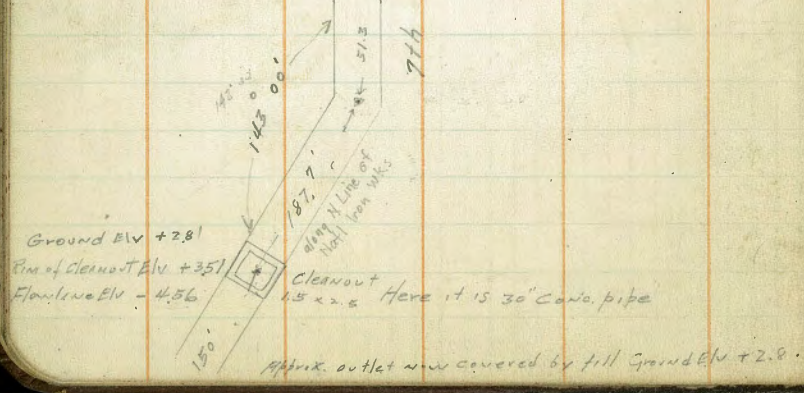 7th
51.3
143° 00'
187.7'
along N Line of
Nat'l Iron Wks
Ground Elv +2.8'
Rim of Cleanout Elv +3.51
Flowline Elv - 4.56
Cleanout
1.5 x 2.5
Here it is 30" Conc. pipe
150'
Approx. outlet now covered by fill Ground Elv + 2.8.